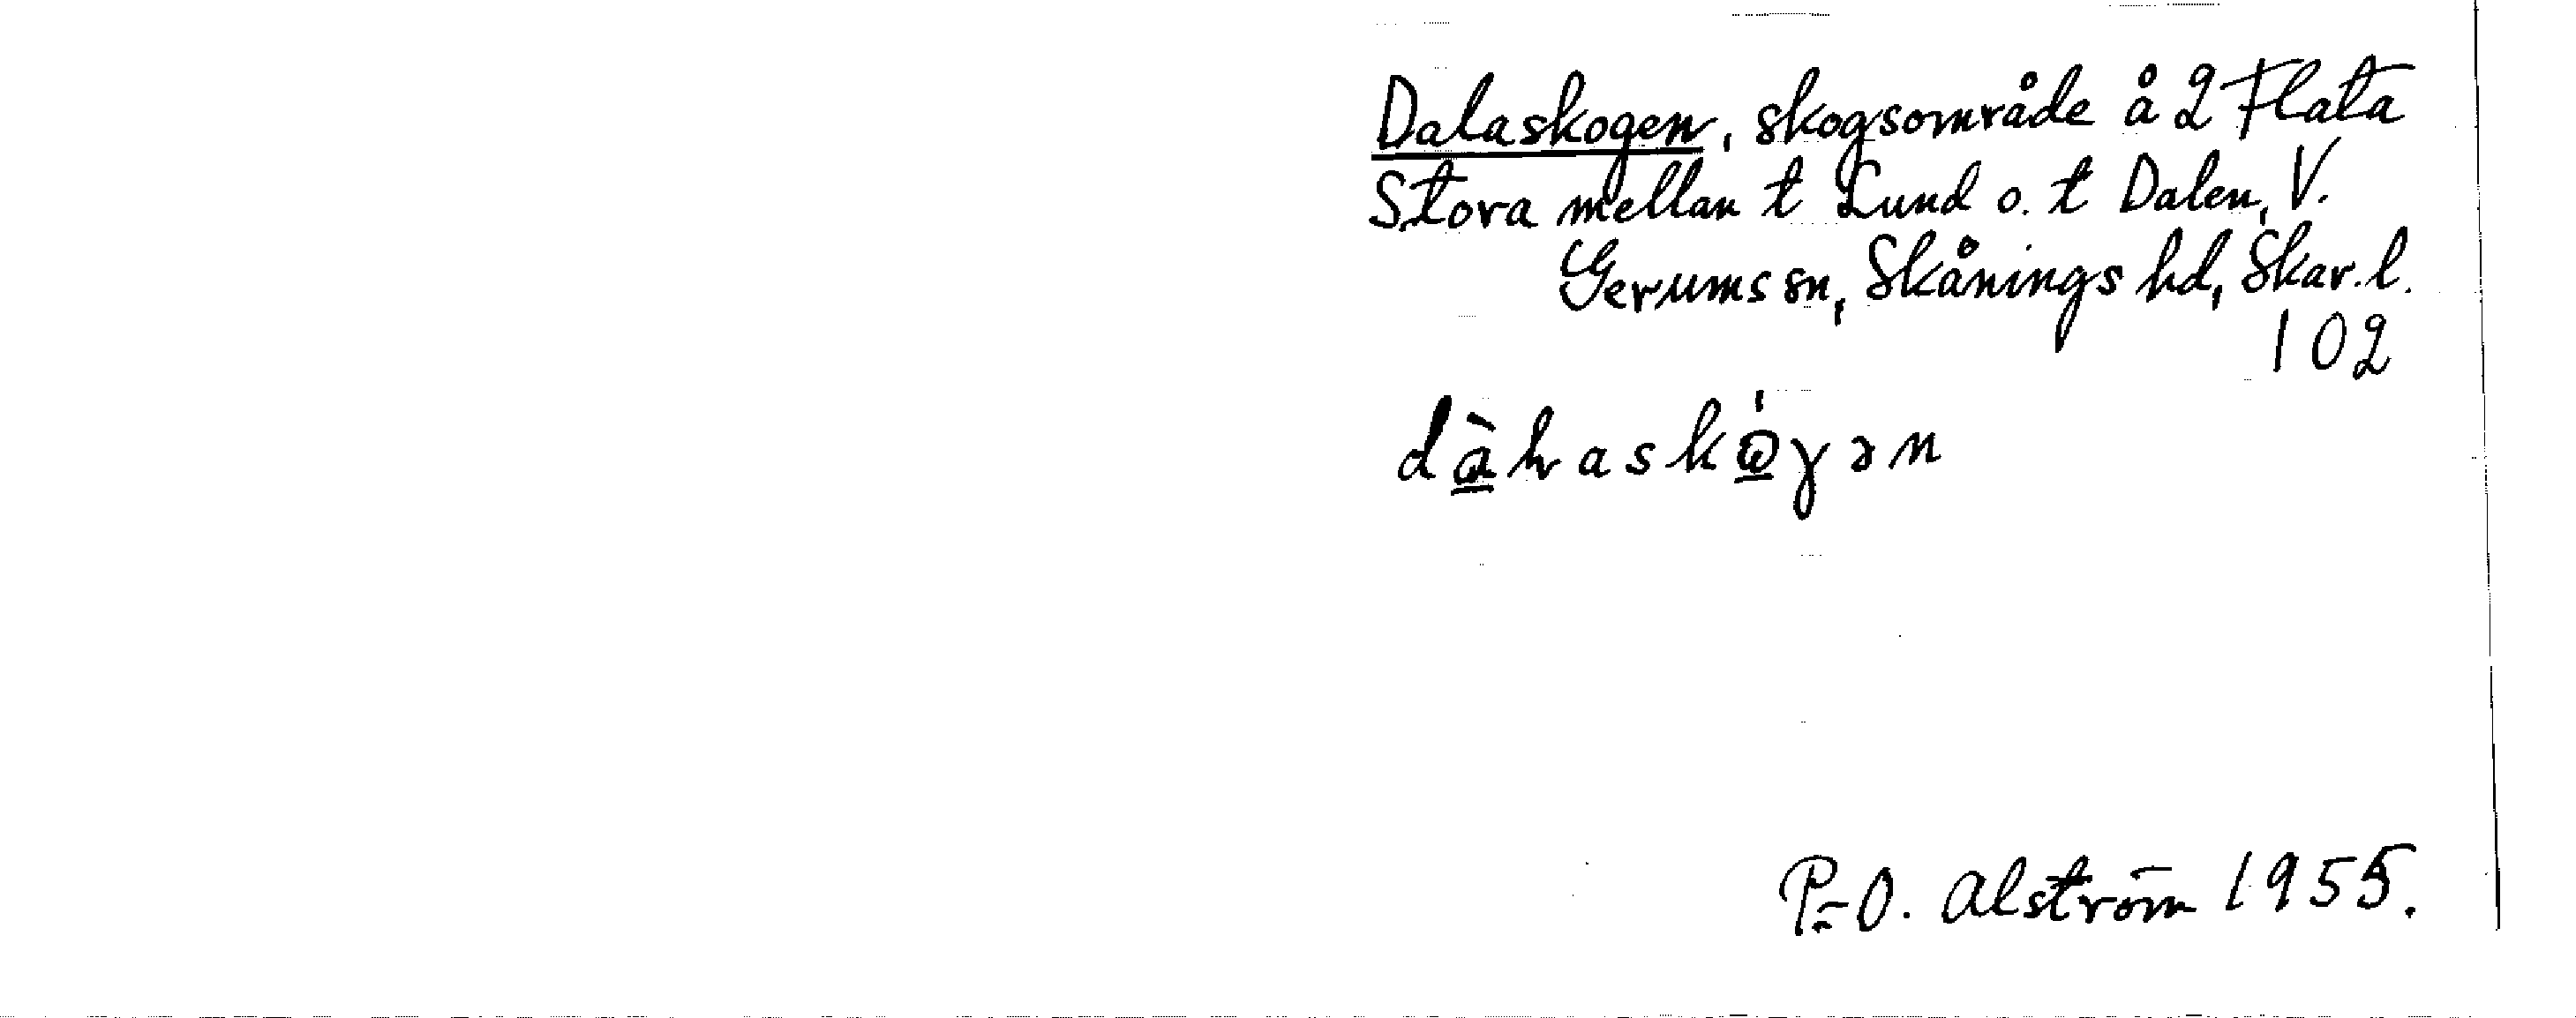 Dalaskogen, skogsområde å 2 Flata
Stora mellan t Lund o. t Dalen, V.
Gerums sn, Skånings hd, Skar. l.
102
P.-O. Alström 1955.